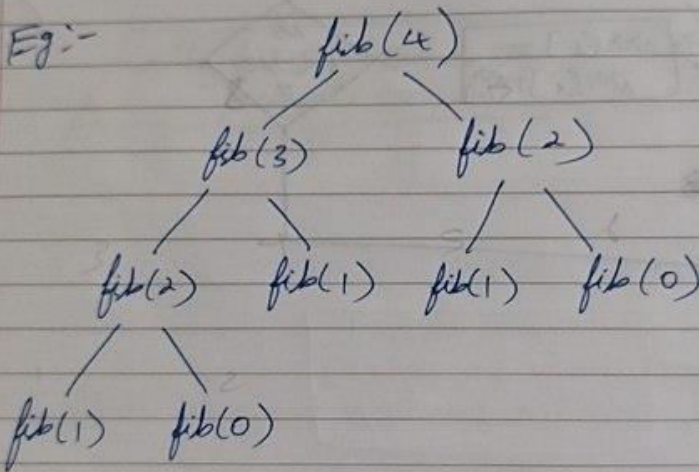 Eg:-
fib(4)
fib(3) fib(2)
fib(2) fib(1) fib(1) fib(0)
fib(1) fib(0)